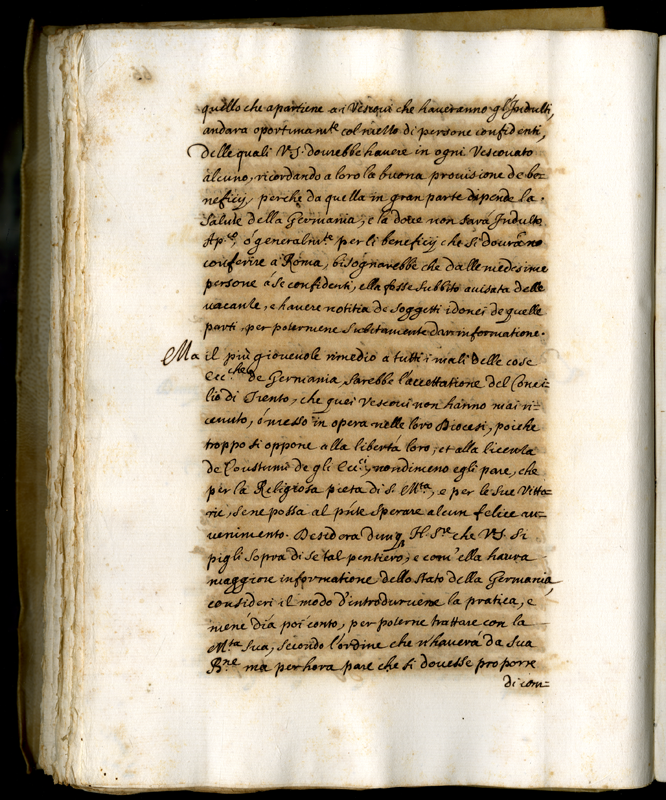 quello che apartiene a i Vescovi che haveranno gl'Indulti,
andara oportunam.te col mezzo di persone confidenti,
delle quali V.S. dourebbe havere in ogni Vescovato
alcuno, ricordando a loro la buona provisione de be=
neficij, perche da quella in gran parte dipende la
salute della Germania; e la dove non sarà Indulto
Ap.co, ò generalm.te per li beneficij che si dovranno
conferire a Roma, bisognarebbe che dalle medesime
persone á se confidenti, ella fosse subbito avisata delle
vacante, e havere notitia de soggetti idonei de quelle
parti, per potermene subitamente dar informatione.
Ma il più giovevole rimedio a tutti i mali delle cose
Ecc.che de Germania, sarebbe l'accettatione del Conci=
lio di Trento, che quei Vescovi non hanno mai ri=
cevuto, ó messo in opera nelle loro Diocesi, poiche
troppo si oppone alla libertá loro, et alla licenza
de Coustumi de gli Ecc.ci, nondimeno egli pare, che
per la Religiosa pieta di S. M.ta, e per le sue Vitto=
rie, se ne possa al pñte sperare alcun felice av=
venimento. Desidera dunq. N. S.re che V.S. si
pigli sopra di se tal pensiero; e com'ella havra
maggiore informatione dello stato della Germania,
consideri il modo d'introdurvene la pratica, e
mene dia poi conto, per poterne trattare con la
M.ta Sua, secondo l'ordine che n'haverá da sua
B.ne ma per hora pare che si dovesse proporre
di com=